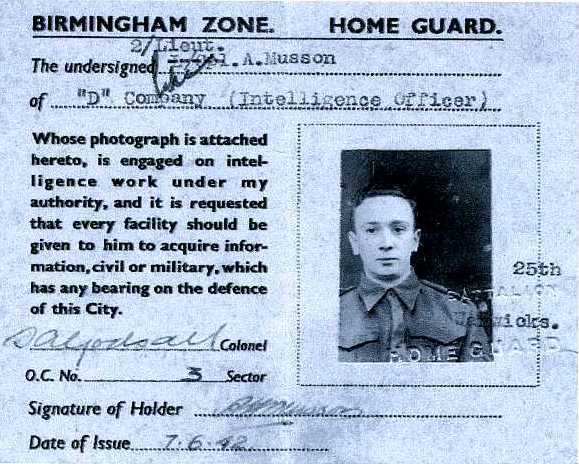 BIRMINGHAM ZONE. HOME GUARD.
2/Lieut.
The undersigned A.Musson
of "D" Company (Intelligence Officer)
Whose photograph is attached
hereto, is engaged on intel-
ligence work under my
authority, and it is requested
that every facility should be
given to him to acquire infor-
mation, civil or military, which
has any bearing on the defence
of this City.
25th
BATTALION
Warwicks.
HOME GUARD
Colonel
O.C. No. 3 Sector
Signature of Holder Musson
Date of Issue 7.6.42.